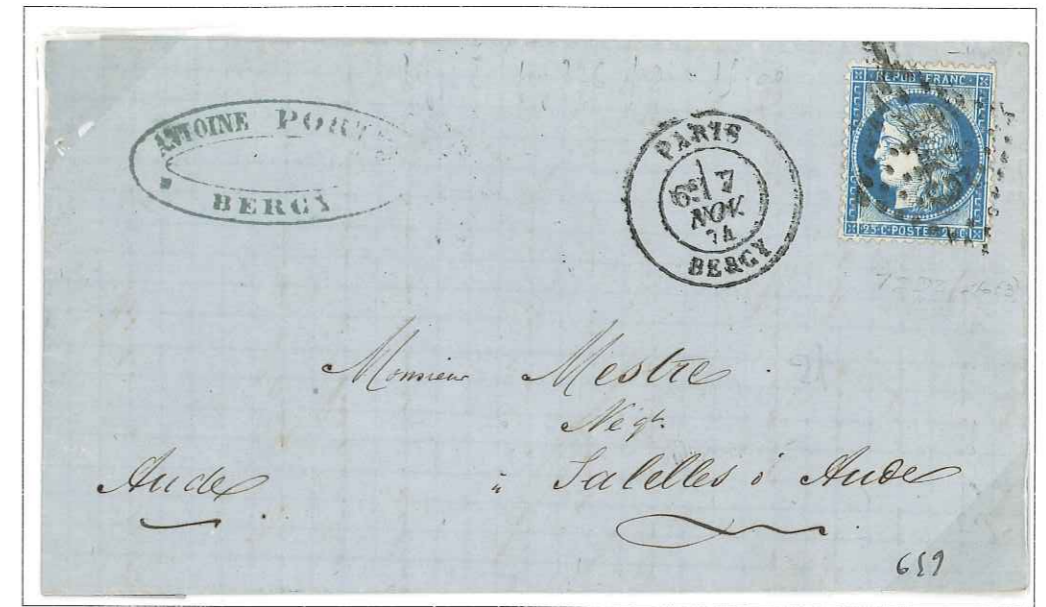 ANTOINE
BERCY
PARIS
7
NOV.
74
BERCY
REPUB. FRANC.
25 C. POSTE 25 C.
Monsieur Mestre
Négt.
à Salelles d'Aude
Aude
659